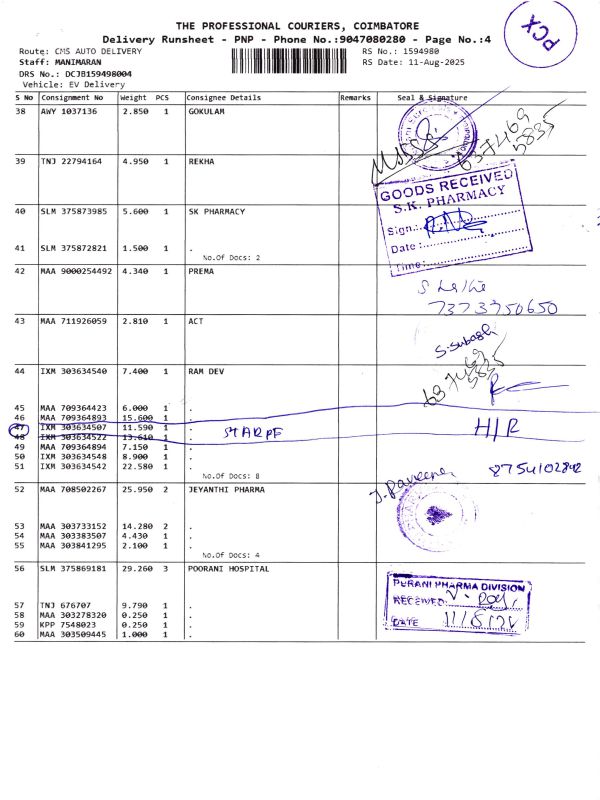 THE PROFESSIONAL COURIERS, COIMBATORE
Delivery Runsheet - PNP - Phone No.:9047080280 - Page No.:4
PCX
Route: CMS AUTO DELIVERY
RS No.: 1594980
Staff: MANIMARAN
RS Date: 11-Aug-2025
DRS No.: DCJB159498004
Vehicle: EV Delivery
S No Consignment No Weight PCS Consignee Details Remarks Seal & Signature
38 AWY 1037136 2.850 1 GOKULAM
637469
5835
39 TNJ 22794164 4.950 1 REKHA
GOODS RECEIVED
S.K. PHARMACY
Sign:
Date:
Time:
40 SLM 375873985 5.600 1 SK PHARMACY
41 SLM 375872821 1.500 1 .
No.Of Docs: 2
42 MAA 9000254492 4.340 1 PREMA
7373750650
43 MAA 711926059 2.810 1 ACT
S.Subash
637469
5835
44 IXM 303634540 7.400 1 RAM DEV
45 MAA 709364423 6.000 1 .
46 MAA 709364893 15.600 1 .
47 IXM 303634507 11.590 1 .
48 IXM 303634522 13.610 1 .
H/R
49 MAA 709364894 7.150 1 .
50 IXM 303634548 8.900 1 .
51 IXM 303634542 22.580 1 .
No.Of Docs: 8
8754102842
52 MAA 708502267 25.950 2 JEYANTHI PHARMA
J. Praveena
53 MAA 303733152 14.280 2 .
54 MAA 303383507 4.430 1 .
55 MAA 303841295 2.100 1 .
No.Of Docs: 4
56 SLM 375869181 29.260 3 POORANI HOSPITAL
PURANI PHARMA DIVISION
RECEIVED
DATE 11/8/25
57 TNJ 676707 9.790 1 .
58 MAA 303278320 0.250 1 .
59 KPP 7548023 0.250 1 .
60 MAA 303509445 1.000 1 .